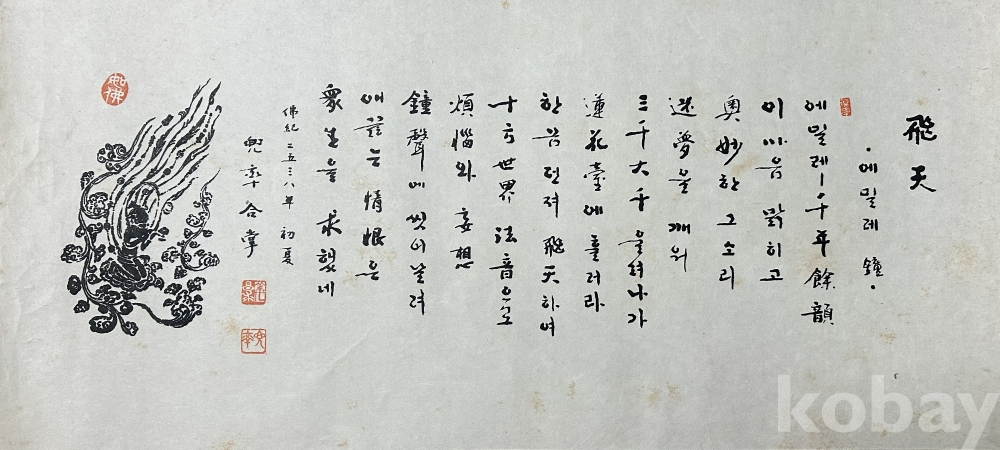 飛天
·에밀레 鐘·
에밀레- 千年餘韻
이 마음 맑히고
奧妙한 그 소리
迷夢을 깨워
三千大千 울려나가
蓮花臺에 흘러라
한 몸 던져 飛天하여
十方世界 法音으로
煩惱와 妄想
鐘聲에 씻어 날려
애끓는 情恨은
衆生을 求했네
佛紀 二五三八年 初夏
兜率 合掌
kobay